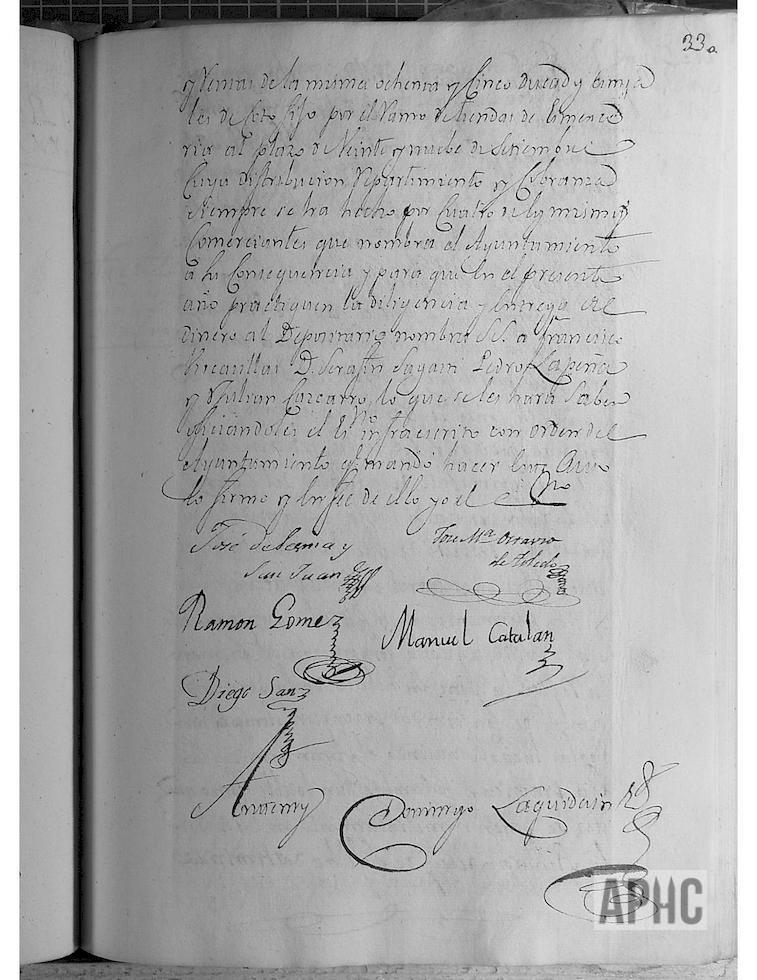 33
y Ventas de la misma ochenta y Cinco y
les de Coto fijo por el Ramo de tiendas de
ria al plazo de Veinte y nuebe de Setiembre
Cuya distribucion Repartimiento y Cobranza
siempre se ha hecho por Cuatro de los mismos
Comerciantes que nombra el Ayuntamiento
a la Consequencia y para que en el presente
año practiquen la diligencia y entrega del
dinero al Depositario nombra S.S. a Francisco
D. Serafin Sagasti Pedro Lapeña
y Julian lo que se les hara Saber
el Es.no infraescrito con orden del
Ayuntamiento q.e mandó hacer este Auto
lo firmo y en fee de ello yo el Es.no
José de Lama y
San Juan
Jose M.a Ossorio
de Toledo
Ramon Gomez
Manuel Catalan
Diego Sanz
Antemy
Domingo Laquidain
APHC